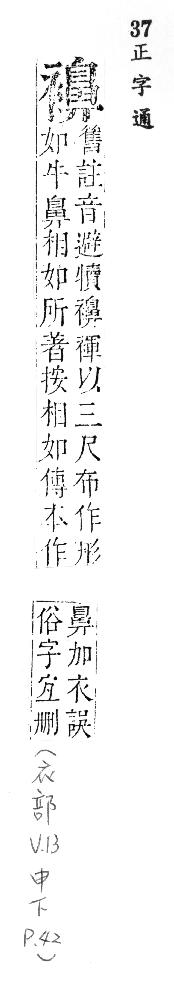 37
正字通
襣
舊註音避犢襣褌以三尺布作形
如牛鼻相如所著按相如傳本作
鼻加衣誤
俗字宐删
(衣部 V.13 申下 P.42)